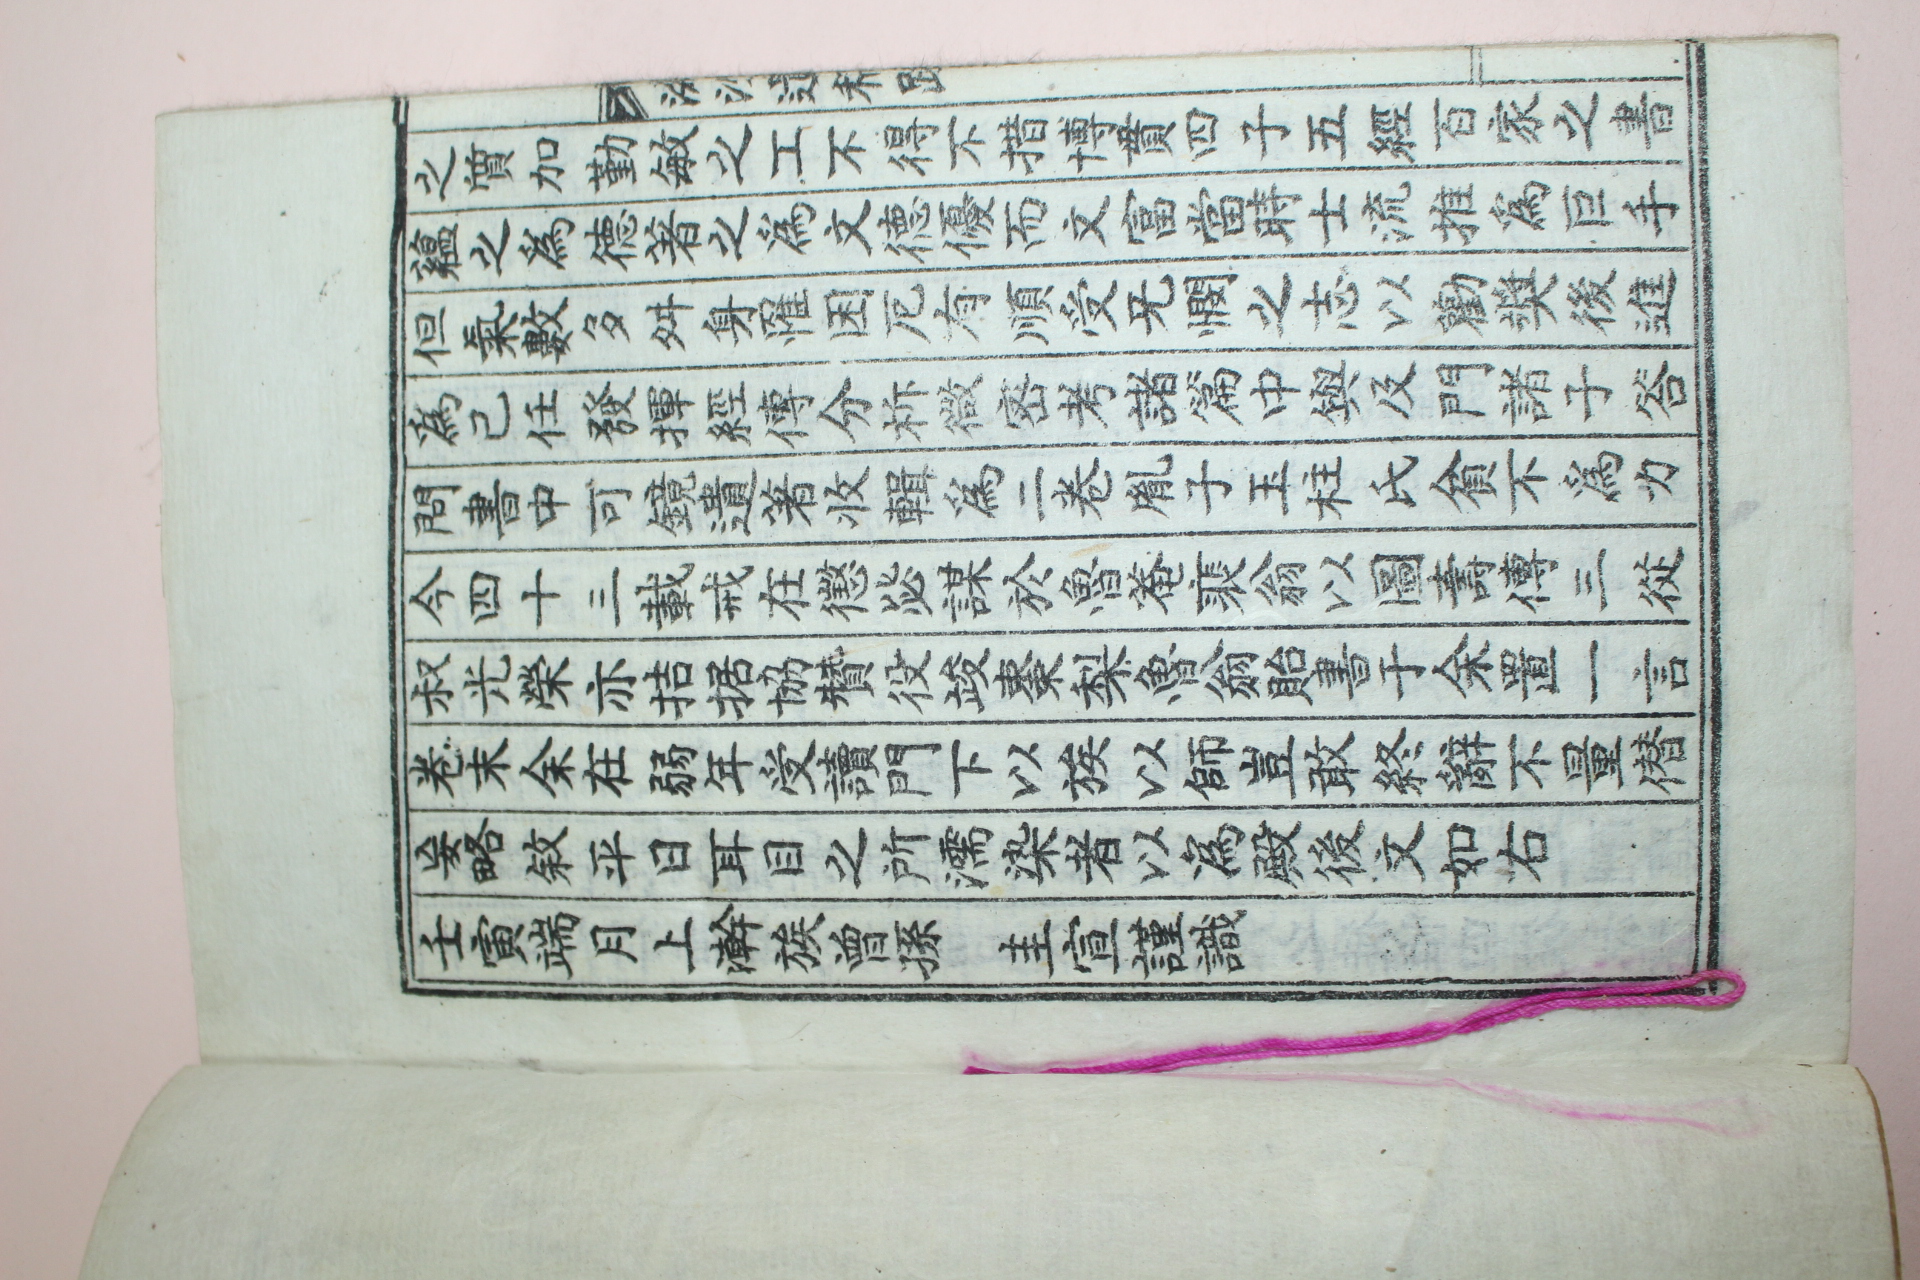 遺稿跋
之質加勤敏之工不得不措博貫四子五經百家之書
蘊之爲德著之爲文德優而文富當時士流推爲巨手
但氣數多舛身罹困厄有順受旡憫之志以勸奬後進
爲己任發揮經傳分析微密考諸篇中與及門諸子答
問書中可鏡遺著收輯爲二卷胤子玉柱氏貧不爲力
今四十三載戒在懲毖謀於魯菴裵翁以圖壽傳三從
叔光榮亦拮据協贊役竣棗梨魯翁貽書于余置一言
卷末余在弱年受讀門下以族以師豈敢終辭不量僭
妄略敘平日耳目之所濡染者以爲殿後文如右
壬寅端月上澣族曾孫 圭宣謹識